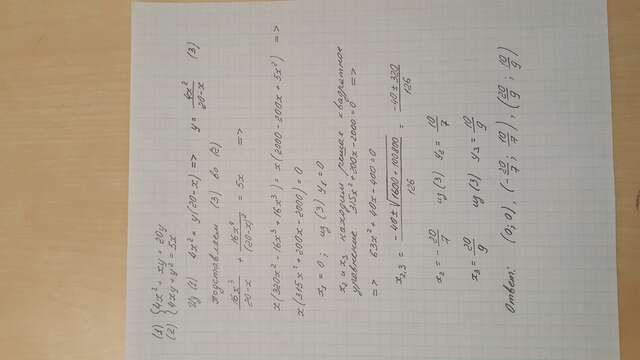 (1) {4x² + xy = 20y
(2) {4xy + y² = 5x
Из (1) 4x² = y(20-x) => y = 4x²/(20-x) (3)
подставляем (3) во (2)
16x³/(20-x) + 16x⁴/(20-x)² = 5x =>
x(320x² - 16x³ + 16x³) = x(2000 - 200x + 5x²) =>
x(315x² + 200x - 2000) = 0
x₁ = 0; из (3) y₁ = 0
x₂ и x₃ находим решая квадратное
уравнение 315x² + 200x - 2000 = 0 =>
=> 63x² + 40x - 400 = 0
x₂,₃ = (-40 ± √(1600 + 100800))/126 = (-40 ± 320)/126
x₂ = -20/7 из (3) y₂ = 10/7
x₃ = 20/9 из (3) y₃ = 10/9
Ответ: (0; 0), (-20/7; 10/7), (20/9; 10/9)